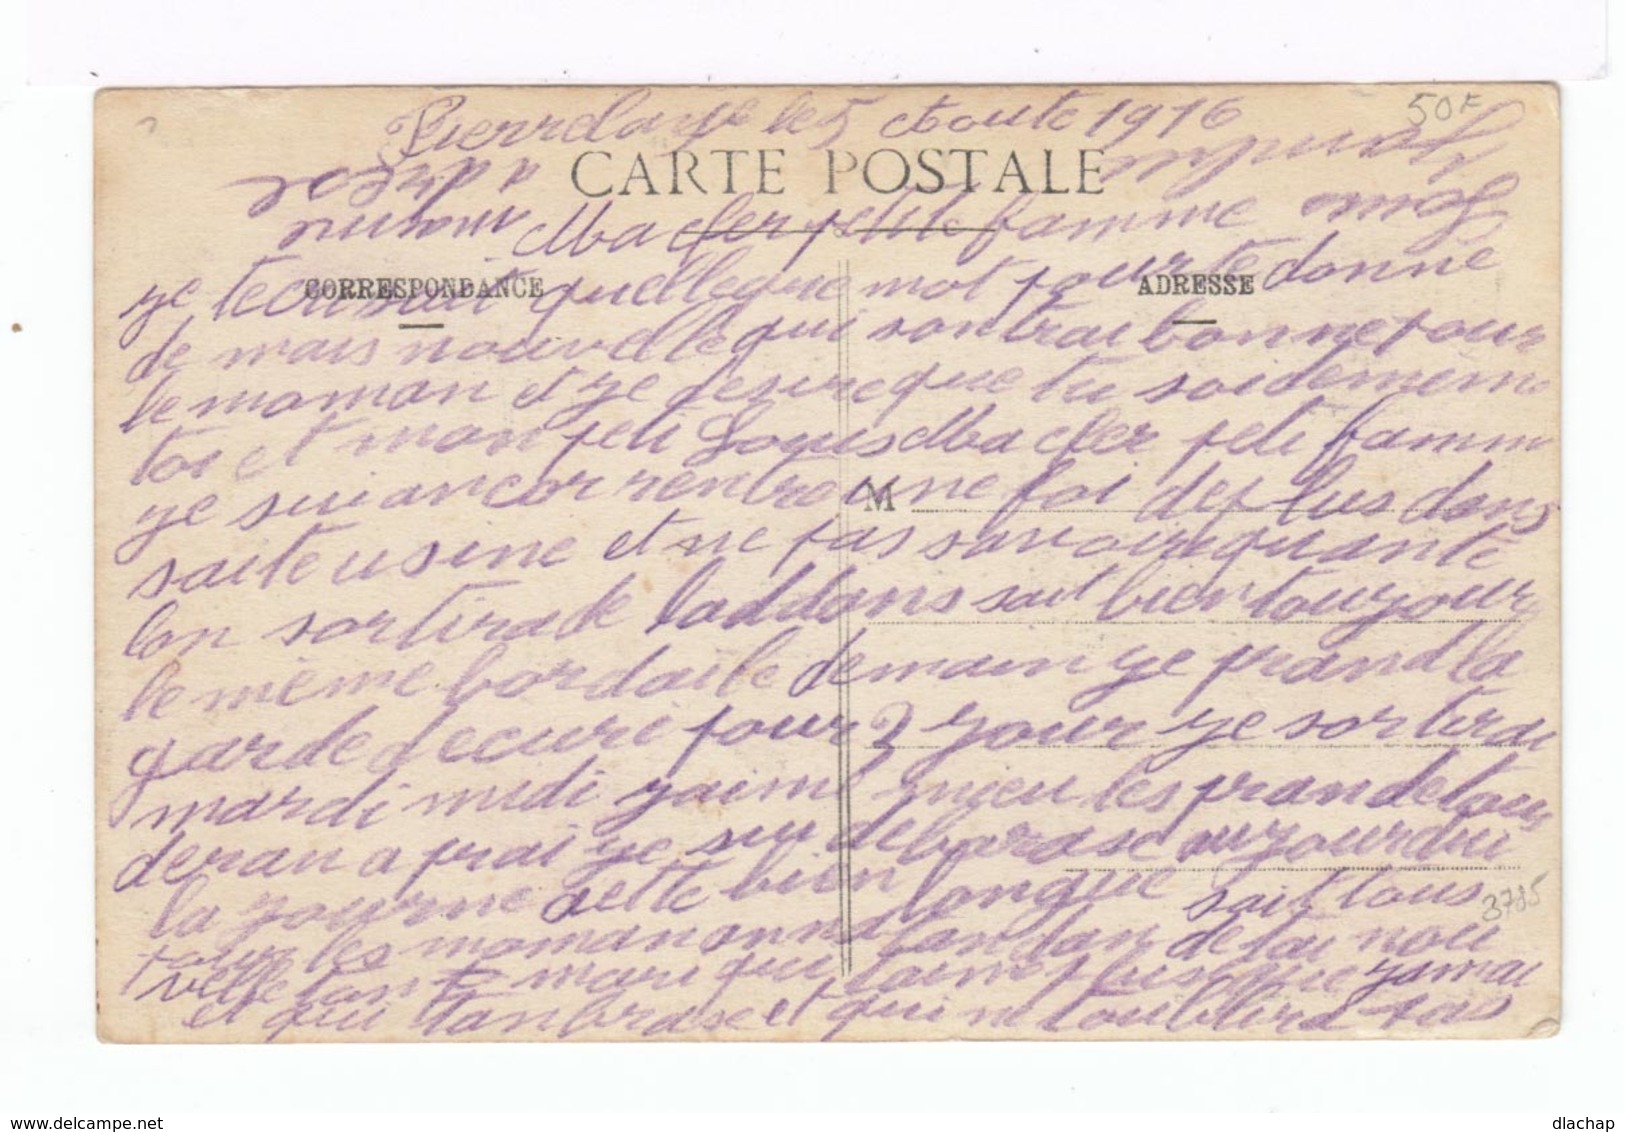 Pierrelaye le 5 Aoute 1916
50F
CARTE POSTALE
Ma cher petite famme
CORRESPONDANCE
ADRESSE
je tecri suit quelleque mot pour te donné
de mais nouvelle qui son trai bonne pour
le moman et je desire que tu soi de meme
toi et mon peti Louis Ma cher peti famme
M
je sui ancor rentre une foi de plus dans
saite usine et ne pas savoir quante
lon sortira de laddans sait bien toujour
le mème bordaile demain je prand la
garde decurí pour 3 jour je sortirai
mardi midi j'aime mieu les prande tous
deran aprai je sui debarase aujourdui
la journe sette bien longue sait tous
pour les moman on na tandan de tai nou
velle ton mari qui taime plus que jamai
et qui tanbrase et qui ne toublira pas
3785
www.delcampe.net
dlachap